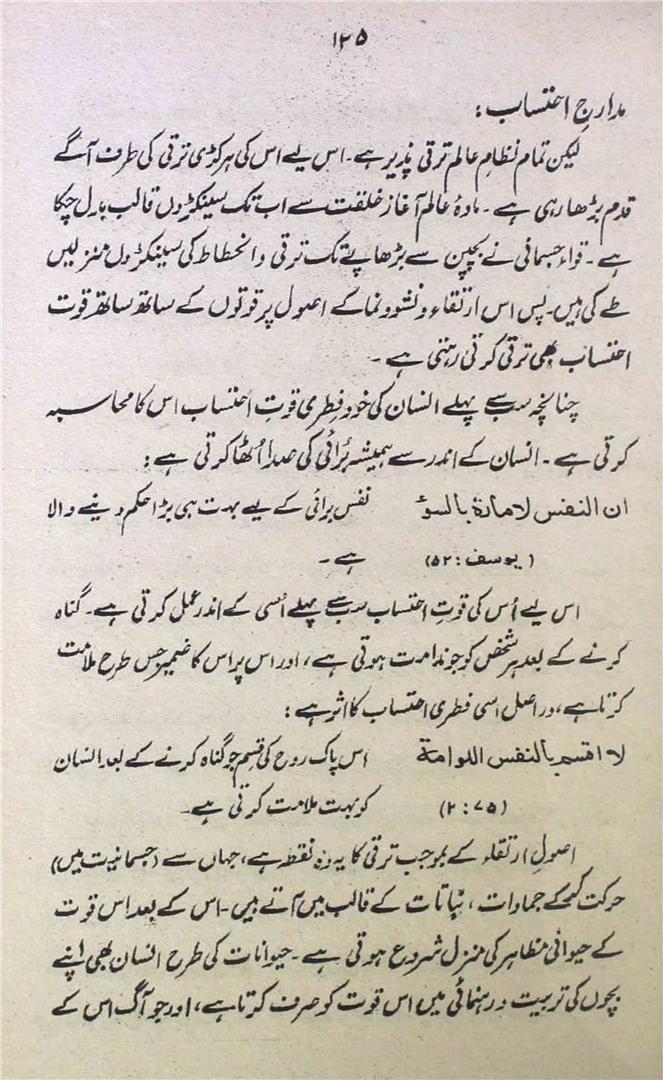 ۱۲۵
مدارجِ احتساب :
لیکن تمام نظامِ عالم ترقی پذیر ہے۔ اس لیے اس کی ہر کڑی ترقی کی طرف آگے
قدم بڑھا رہی ہے۔ مادۂ عالم آغاز خلقت سے اب تک سینکڑوں قالب بدل چکا
ہے۔ قواء جسمانی نے بچپن سے بڑھاپے تک ترقی و انحطاط کی سینکڑوں منزلیں
طے کی ہیں۔ پس اس ارتقاء و نشوونما کے اصول پر قوتوں کے ساتھ ساتھ قوت
احتساب بھی ترقی کرتی رہتی ہے۔
چنانچہ سب سے پہلے انسان کی خود فطری قوتِ احتساب اس کا محاسبہ
کرتی ہے۔ انسان کے اندر سے ہمیشہ برائی کی صدا اُٹھا کرتی ہے :
ان النفس لامارة بالسوء نفس برائی کے لیے بہت ہی بڑا حکم دینے والا
(یوسف : ۵۲) ہے۔
اس لیے اُس کی قوتِ احتساب سب سے پہلے اُسی کے اندر عمل کرتی ہے۔ گناہ
کرنے کے بعد ہر شخص کو جو ندامت ہوتی ہے، اور اس پر اس کا ضمیر جس طرح ملامت
کرتا ہے، دراصل اسی فطری احتساب کا اثر ہے :
لا اقسم بالنفس اللوامة اس پاک روح کی قسم جو گناہ کرنے کے بعد انسان
(۲ : ۷۵) کو بہت ملامت کرتی ہے۔
اصولِ ارتقاء کے بموجب ترقی کا یہ وہ نقطہ ہے، جہاں سے (جسمانیت میں)
حرکت کرکے جمادات، نباتات کے قالب میں آتے ہیں۔ اس کے بعد اس قوت
کے حیوانی مظاہر کی منزل شروع ہوتی ہے۔ حیوانات کی طرح انسان بھی اپنے
بچوں کی تربیت و رہنمائی میں اس قوت کو صرف کرتا ہے، اور جو آگ اس کے